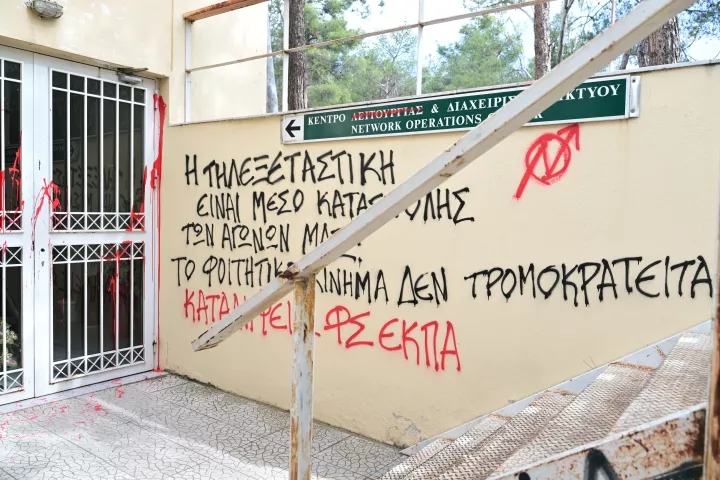 ΚΕΝΤΡΟ ΛΕΙΤΟΥΡΓΙΑΣ & ΔΙΑΧΕΙΡΙΣ ΙΚΤΥΟΥ
NETWORK OPERATIONS
Η ΤΗΛΕΞΕΤΑΣΤΙΚΗ
ΕΙΝΑΙ ΜΕΣΟ ΚΑΤΑΣΤΟΛΗΣ
ΤΩΝ ΑΓΩΝΩΝ ΜΑΣ
ΤΟ ΦΟΙΤΗΤΙΚΟ ΚΙΝΗΜΑ ΔΕΝ ΤΡΟΜΟΚΡΑΤΕΙΤΑΙ
ΦΣ ΕΚΠΑ